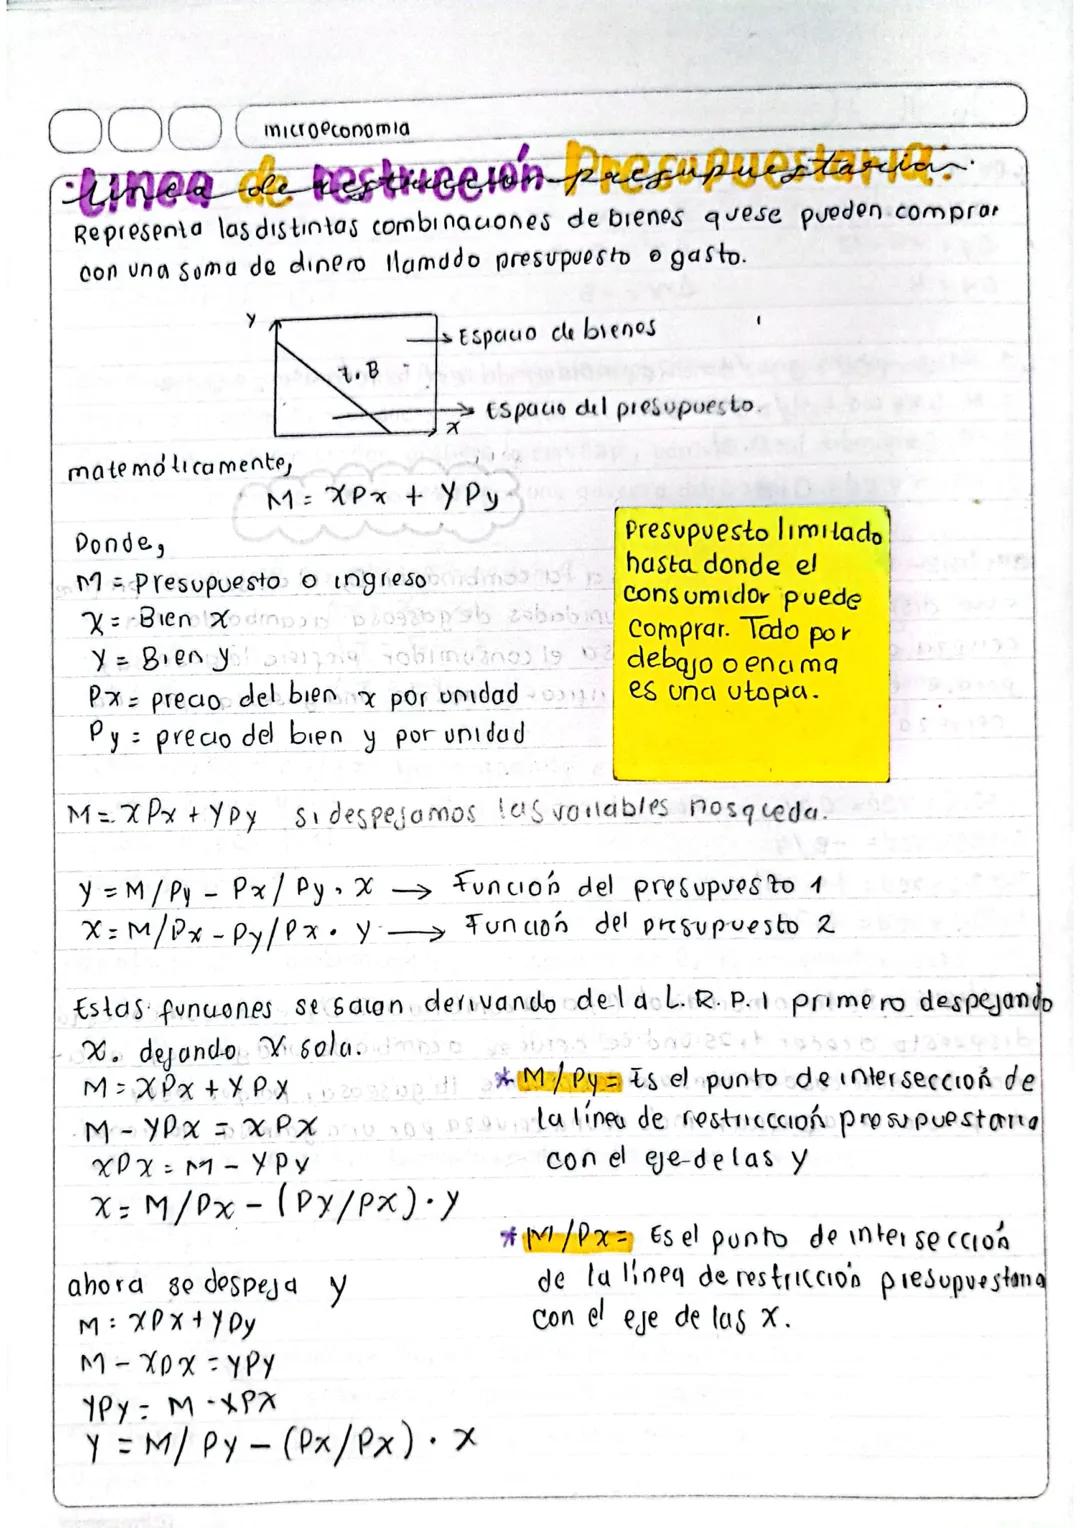 microeconomia
Linea de restricción Presupuestaria:
Representa las distintas combinaciones de bienes que se pueden comprar
con una suma de dinero llamado presupuesto o gasto.
Y
→ Espacio de bienes
t.B
→ Espacio del presupuesto.
X
matemáticamente,
M = XPx + YPy
Donde,
M = Presupuesto o ingreso
X = Bien x
Y = Bien y
Px = precio del bien x por unidad
Py = precio del bien y por unidad
Presupuesto limitado
hasta donde el
consumidor puede
comprar. Todo por
debajo o encima
es una utopia.
M = XPx + YPy si despejamos las variables nos queda.
Y = M/Py - Px/Py . X → Función del presupuesto 1
X = M/Px - Py/Px . Y → Función del presupuesto 2
Estas funciones se sacan derivando de la L.R.P. 1 primero despejando
X. dejando X sola.
M = XPx + YPY
M - YPX = XPX
XPX = M - YPY
X = M/Px - (PY/PX) . Y
* M/Py = Es el punto de intersección de
la línea de restricción presupuestaria
con el eje de las y
* M/Px = Es el punto de intersección
de la línea de restricción presupuestaria
con el eje de las X.
ahora se despeja y
M = XPX + YPy
M - XPX = YPY
YPY = M - XPX
Y = M/PY - (Px/Px) . X